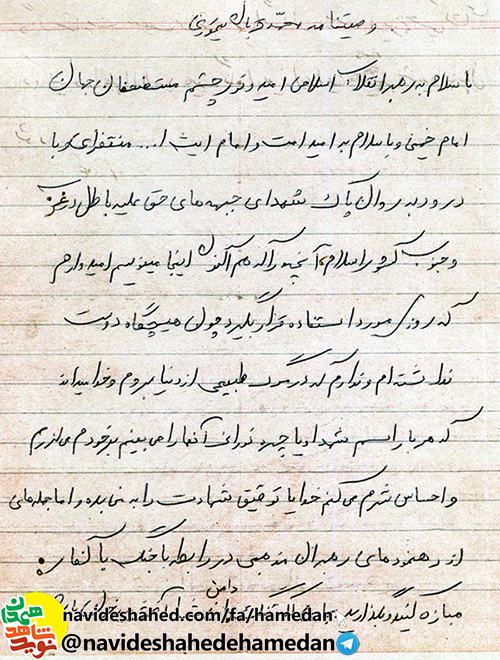 وصیتنامه محمدی تیموری
با سلام به رهبر انقلاب اسلامی امید و نور چشم مستضعفان جهان
امام خمینی و با سلام به امید امت و امام آیت ا... منتظری و با
درود به روان پاک شهدای جبهه های حق علیه باطل در غرب
و جنوب کشور اسلام آنچه را که هم اکنون اینجا مینویسم امیدوارم
که روزی مورد استفاده قرار بگیرد چون هیچگاه دوست
نداشته ام و ندارم که در مرگ طبیعی از دنیا بروم و خدا میداند
که هر بار اسم شهدا و یا چهره نورانی آنها را می بینم بر خود می لرزم
و احساس شرم می کنم خدایا توفیق شهادت را به من بده و اما جمله های
از رهنمودهای رهبران مذهبی در رابطه با جنگ با کفار:
مبارزه کنید و نگذارید دامن
navideshahed.com/fa/hamedan
@navideshahedehamedan
نوید شاهد همدان